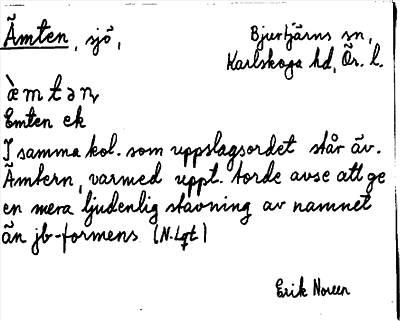 Ämten, sjö,
Bjurtjärns sn,
Karlskoga hd, Ör. l.
æ̀mtən
Emten ek
I samma kol. som uppslagsordet står äv.
Ämtern, varmed uppt. torde avse att ge
en mera ljudenlig stavning av namnet
än jb-formens (N. Lqt)
Erik Noreen